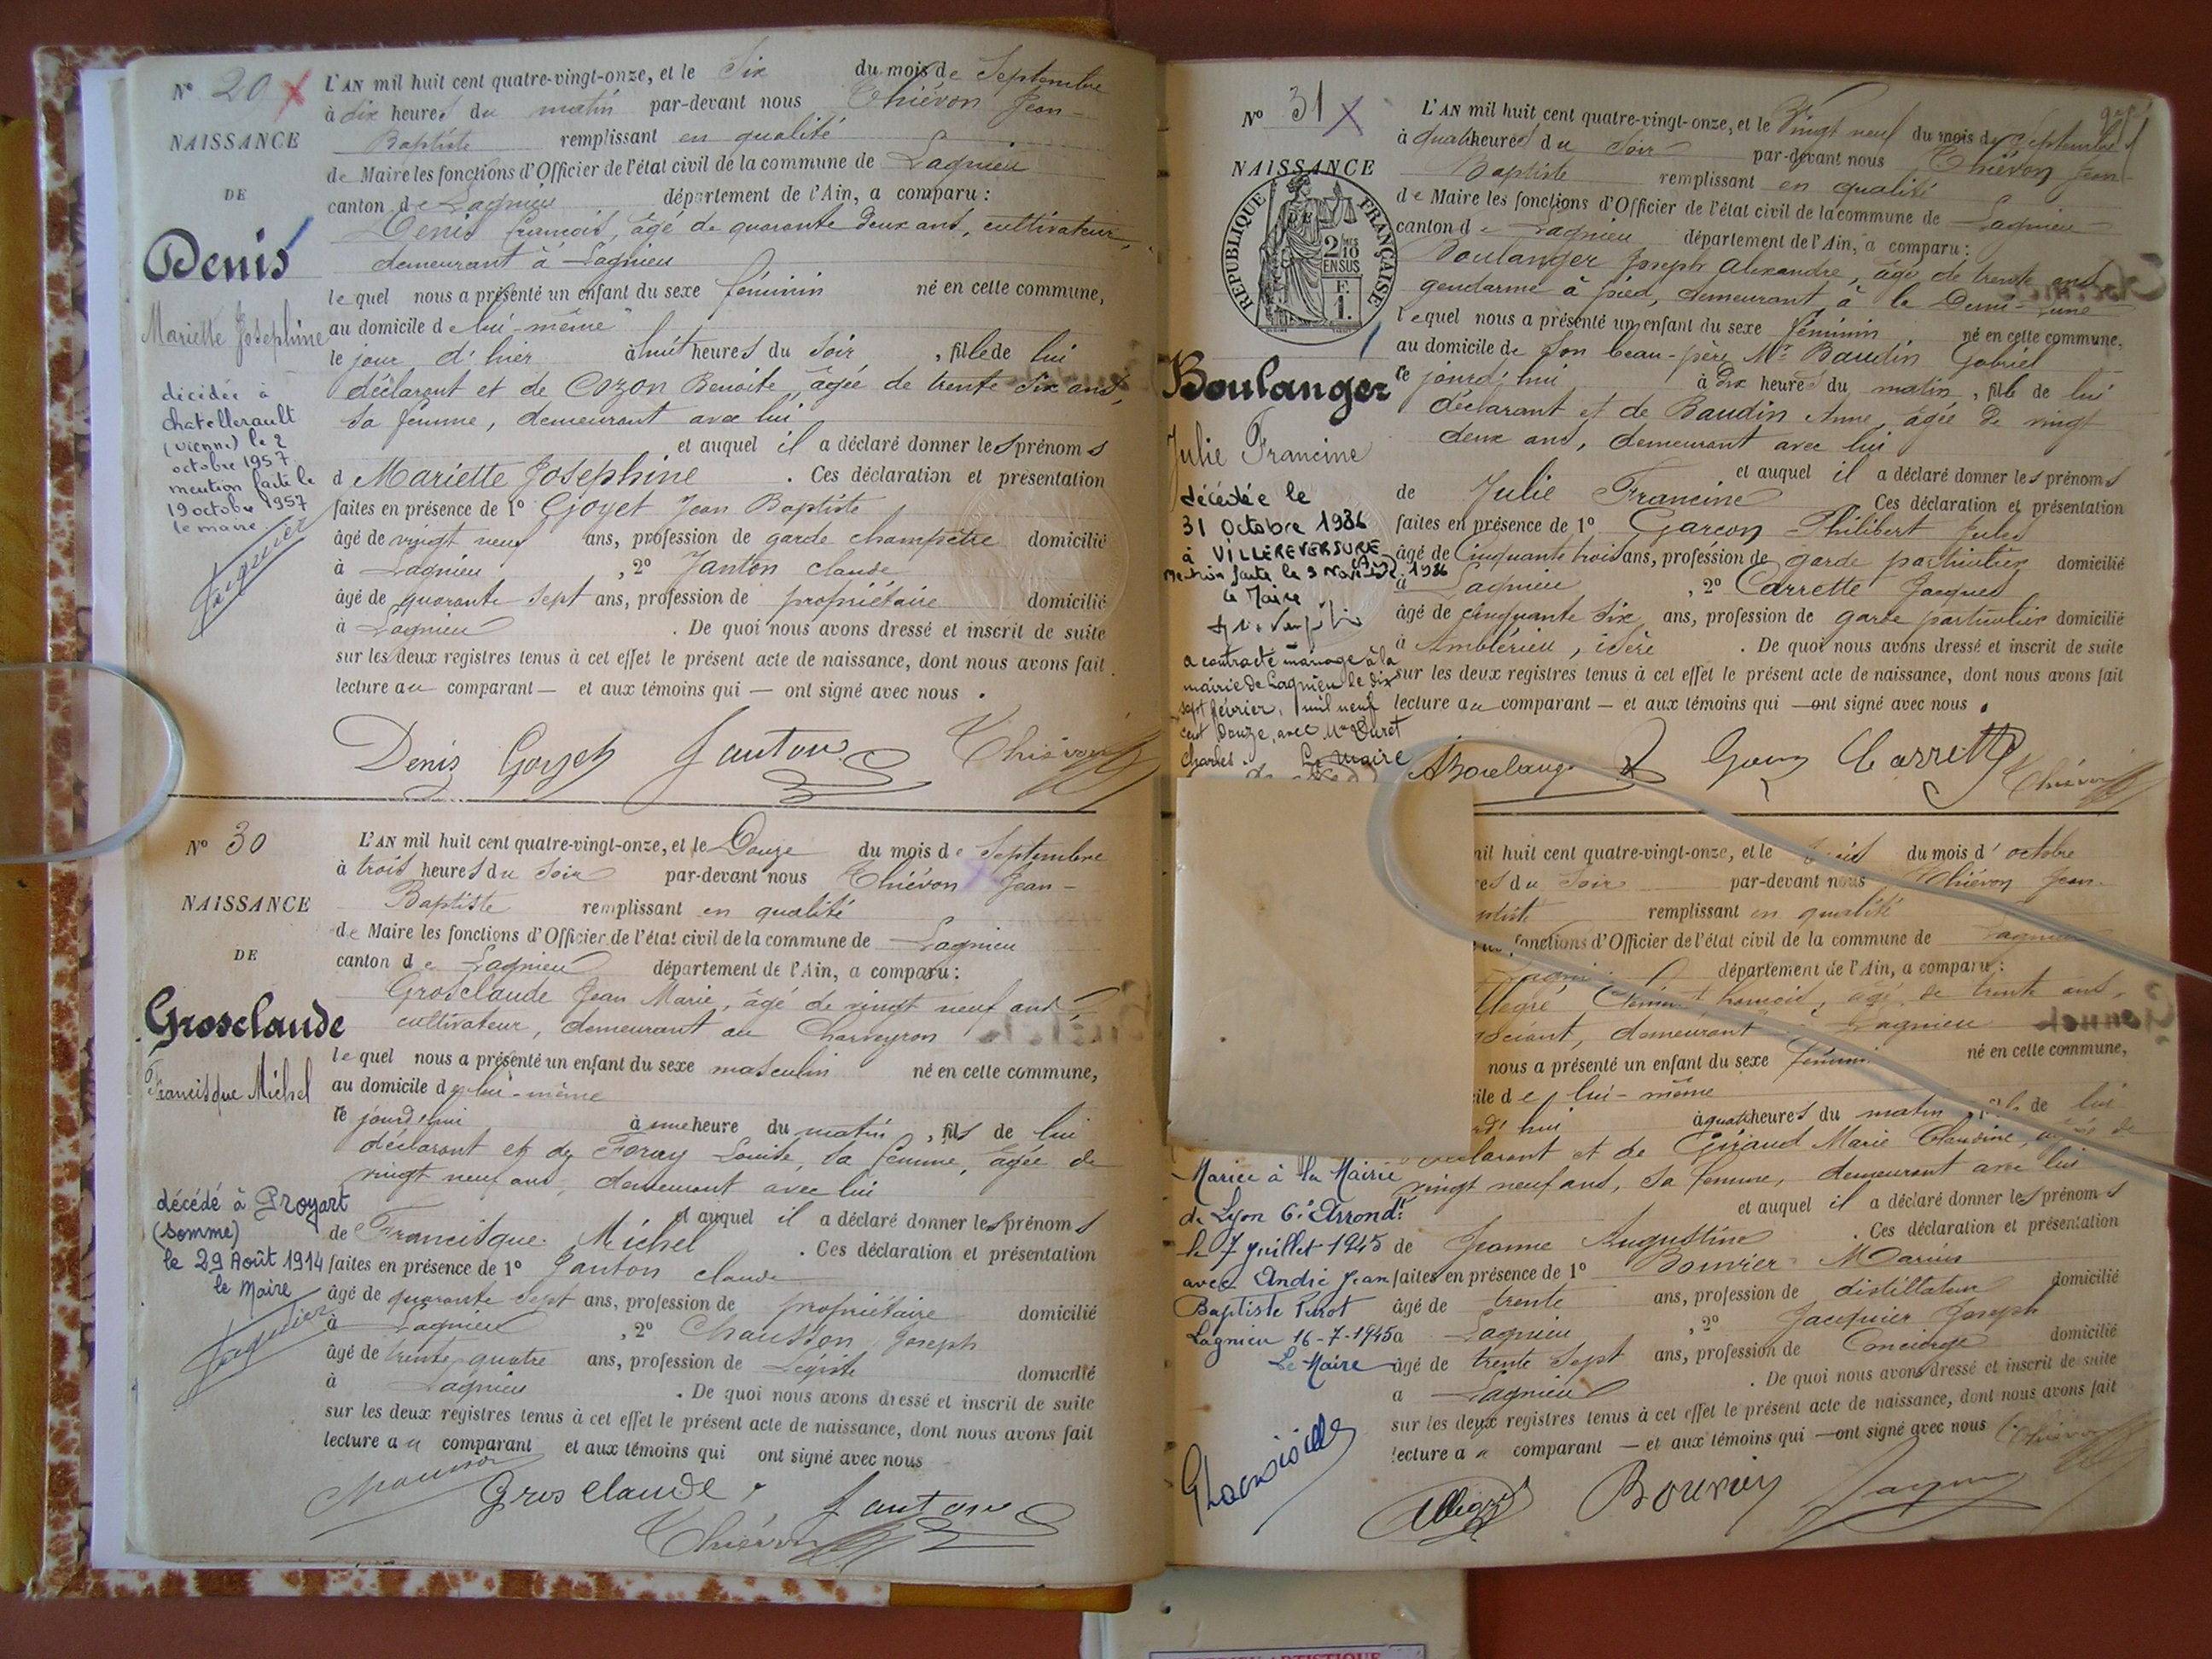 N° 20 X
NAISSANCE
DE
Denis
Mariette Josephine
décédée à
chatellerault
(vienne) le 2
octobre 1957
mention faite le
19 octobre 1957
le maire
L'AN mil huit cent quatre-vingt-onze, et le Six du mois de Septembre
à dix heures du matin par-devant nous Thiévon Jean-
Baptiste remplissant en qualité
de Maire les fonctions d'Officier de l'état civil de la commune de Lagnieu
canton de Lagnieu département de l'Ain, a comparu :
Denis François, âgé de quarante deux ans, cultivateur,
demeurant à Lagnieu
lequel nous a présenté un enfant du sexe féminin né en cette commune,
au domicile de lui-même
le jour d'hier à huit heures du soir, fille de lui
déclarant et de Cozon Benoite, âgée de trente six ans,
sa femme, demeurant avec lui
et auquel il a déclaré donner les prénoms
d Mariette Josephine. Ces déclaration et présentation
faites en présence de 1° Goyet Jean Baptiste
âgé de vingt neuf ans, profession de garde champêtre domicilié
à Lagnieu, 2° Janton Claude
âgé de quarante sept ans, profession de propriétaire domicilié
à Lagnieu. De quoi nous avons dressé et inscrit de suite
sur les deux registres tenus à cet effet le présent acte de naissance, dont nous avons fait
lecture au comparant — et aux témoins qui — ont signé avec nous.
Denis Goyet Janton Thiévon
N° 30
NAISSANCE
DE
Grosclaude
Francisque Michel
décédé à Proyart
(Somme)
le 29 Août 1914
le Maire
L'AN mil huit cent quatre-vingt-onze, et le Douze du mois de Septembre
à trois heures du soir par-devant nous Thiévon Jean-
Baptiste remplissant en qualité
de Maire les fonctions d'Officier de l'état civil de la commune de Lagnieu
canton de Lagnieu département de l'Ain, a comparu :
Grosclaude Jean Marie, âgé de vingt neuf ans,
cultivateur, demeurant au Charveyron
lequel nous a présenté un enfant du sexe masculin né en cette commune,
au domicile de lui-même
le jourd'hui à une heure du matin, fils de lui
déclarant et de Foray Louise, sa femme, âgée de
vingt neuf ans, demeurant avec lui
et auquel il a déclaré donner les prénoms
de Francisque Michel. Ces déclaration et présentation
faites en présence de 1° Janton Claude
âgé de quarante sept ans, profession de propriétaire domicilié
à Lagnieu, 2° Chausson Joseph
âgé de trente quatre ans, profession de Légiste domicilié
à Lagnieu. De quoi nous avons dressé et inscrit de suite
sur les deux registres tenus à cet effet le présent acte de naissance, dont nous avons fait
lecture au comparant et aux témoins qui ont signé avec nous
Grosclaude Janton
Thiévon
N° 31 X
NAISSANCE
DE
RÉPUBLIQUE FRANÇAISE
2 MES
10
EN SUS
F.
1.
Boulanger
Julie Francine
décédée le
31 Octobre 1986
à VILLEREVERSURE
Mention faite le 3 Nov. 1986
Le Maire
a contracté mariage à la
mairie de Lagnieu le dix
sept février, mil neuf
cent douze, avec Mr Duret
Charles. Le Maire
L'AN mil huit cent quatre-vingt-onze, et le Vingt neuf du mois de Septembre
à quatre heures du soir par-devant nous Thiévon Jean-
Baptiste remplissant en qualité
de Maire les fonctions d'Officier de l'état civil de la commune de Lagnieu
canton de Lagnieu département de l'Ain, a comparu :
Boulanger Joseph Alexandre, âgé de trente ans
gendarme à pied, demeurant à la Demi-Lune
lequel nous a présenté un enfant du sexe féminin né en cette commune,
au domicile de son beau-père Mr Baudin Gabriel
le jourd'hui à dix heures du matin, fille de lui
déclarant et de Baudin Anne, âgée de vingt
deux ans, demeurant avec lui
et auquel il a déclaré donner les prénoms
de Julie Francine Ces déclaration et présentation
faites en présence de 1° Garçon Philibert Jules
âgé de Cinquante trois ans, profession de garde particulier domicilié
à Lagnieu, 2° Carrette Jacques
âgé de cinquante six ans, profession de garde particulier domicilié
à Amblérieu, isère. De quoi nous avons dressé et inscrit de suite
sur les deux registres tenus à cet effet le présent acte de naissance, dont nous avons fait
lecture au comparant — et aux témoins qui — ont signé avec nous.
ABoulanger Carrette Thiévon
Mariée à la Mairie
de Lyon 6e Arrondt
le 7 Juillet 1945
avec André Jean
Baptiste Purot
Lagnieu 16-7-1945
Le Maire
mil huit cent quatre-vingt-onze, et le trois du mois d'octobre
res du soir par-devant nous Thiévon Jean-
ptiste remplissant en qualité
fonctions d'Officier de l'état civil de la commune de Lagnieu
Lagnieu département de l'Ain, a comparu :
âgé de trente ans,
demeurant Lagnieu
nous a présenté un enfant du sexe féminin né en cette commune,
ile de lui-même
rd'hui à quatre heures du matin, fille de lui
déclarant et de Giraud Marie Claudine, âgée de
vingt neuf ans, sa femme, demeurant avec lui
et auquel il a déclaré donner les prénoms
de Jeanne Augustine. Ces déclaration et présentation
faites en présence de 1° Bouvier Marius
âgé de trente ans, profession de distillateur domicilié
à Lagnieu, 2° Jacquier Joseph
âgé de trente sept ans, profession de Concierge domicilié
à Lagnieu. De quoi nous avons dressé et inscrit de suite
sur les deux registres tenus à cet effet le présent acte de naissance, dont nous avons fait
lecture au comparant — et aux témoins qui — ont signé avec nous
Bouvier